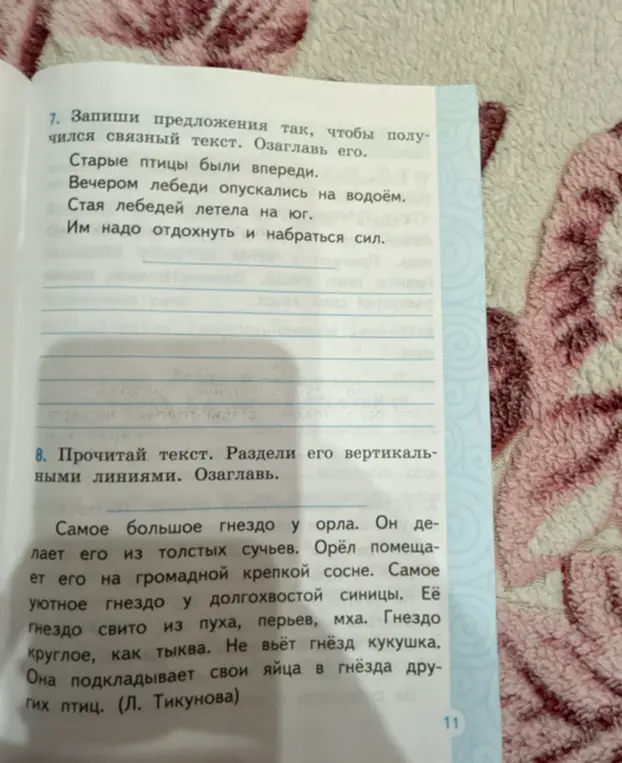 7. Запиши предложения так, чтобы полу-
чился связный текст. Озаглавь его.
Старые птицы были впереди.
Вечером лебеди опускались на водоём.
Стая лебедей летела на юг.
Им надо отдохнуть и набраться сил.
8. Прочитай текст. Раздели его вертикаль-
ными линиями. Озаглавь.
Самое большое гнездо у орла. Он де-
лает его из толстых сучьев. Орёл помеща-
ет его на громадной крепкой сосне. Самое
уютное гнездо у долгохвостой синицы. Её
гнездо свито из пуха, перьев, мха. Гнездо
круглое, как тыква. Не вьёт гнёзд кукушка.
Она подкладывает свои яйца в гнёзда дру-
гих птиц. (Л. Тикунова)
11